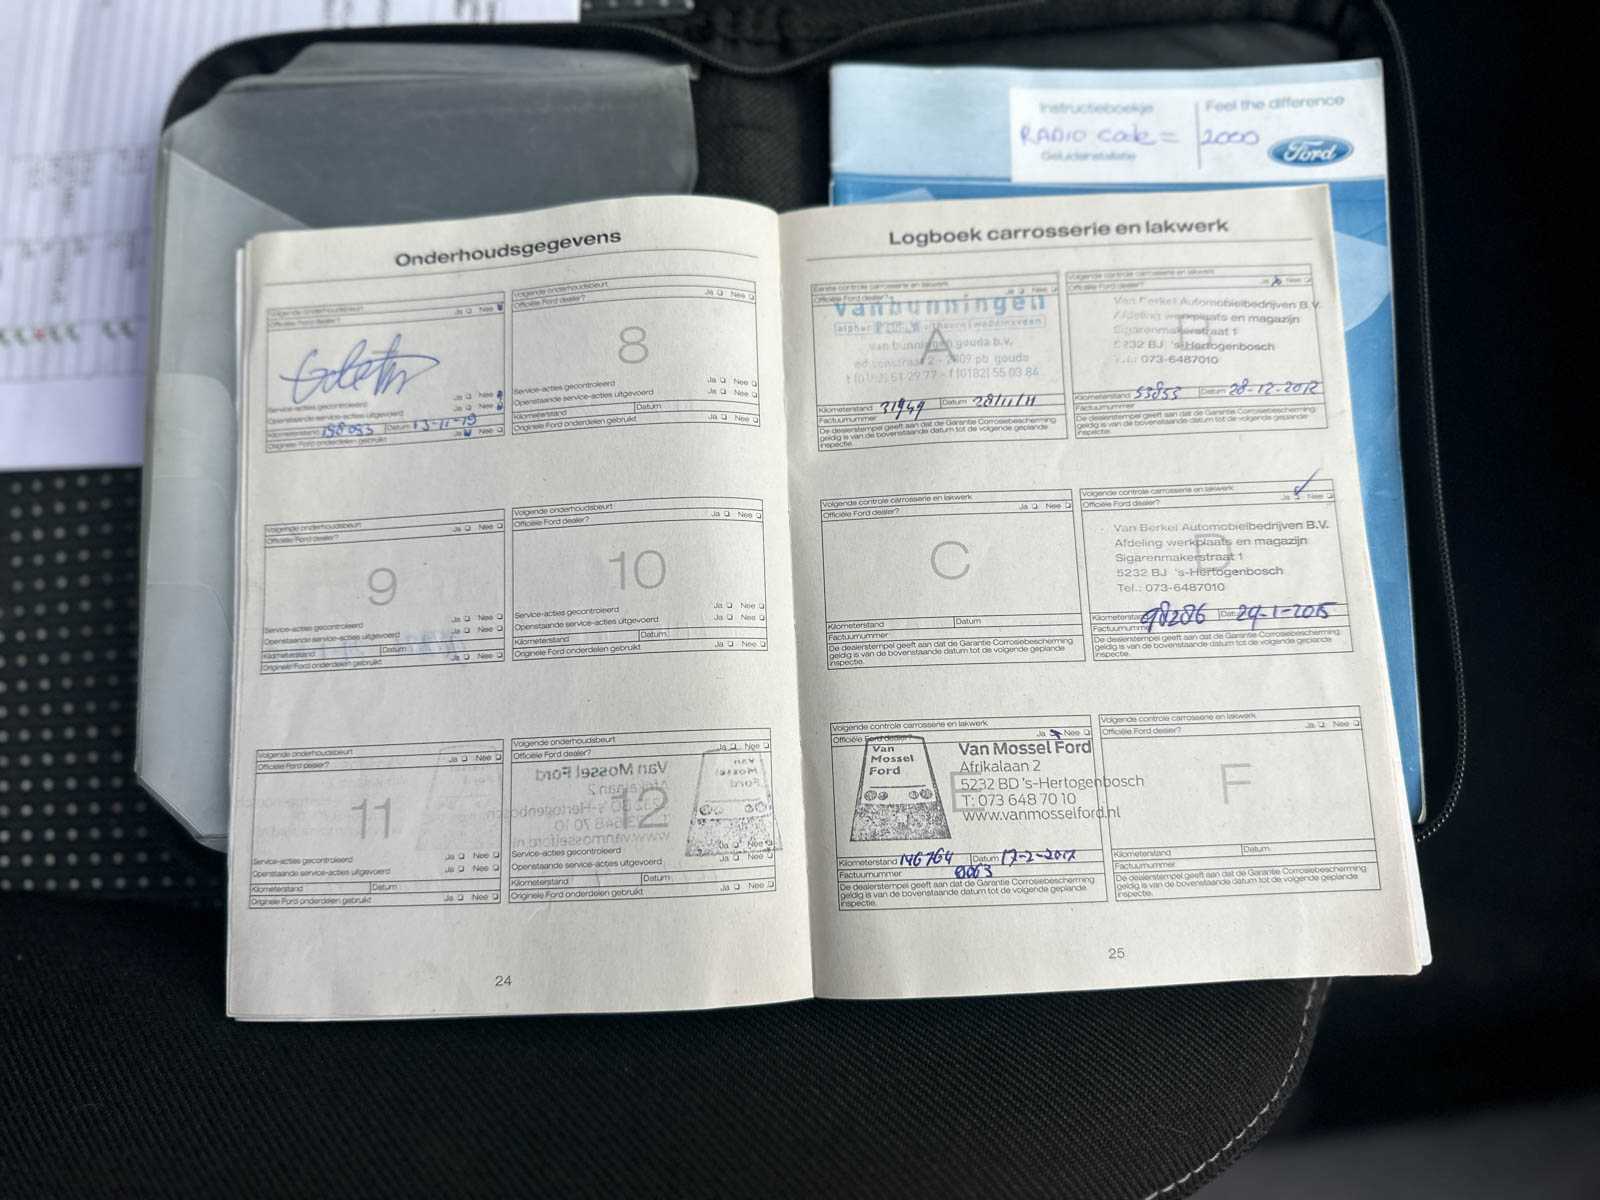 Instructieboekje
Feel the difference
RADIO Code = 2000
Geluidsinstallatie
Ford
Onderhoudsgegevens
Volgende onderhoudsbeurt
Officiële Ford dealer? Ja Nee
Service-acties gecontroleerd Ja Nee
Openstaande service-acties uitgevoerd Ja Nee
Kilometerstand Datum 13-11-19
Originele Ford onderdelen gebruikt Ja Nee
Volgende onderhoudsbeurt
Officiële Ford dealer? Ja Nee
8
Service-acties gecontroleerd Ja Nee
Openstaande service-acties uitgevoerd Ja Nee
Kilometerstand Datum
Originele Ford onderdelen gebruikt Ja Nee
Volgende onderhoudsbeurt
Officiële Ford dealer? Ja Nee
9
Service-acties gecontroleerd Ja Nee
Openstaande service-acties uitgevoerd Ja Nee
Kilometerstand Datum
Originele Ford onderdelen gebruikt Ja Nee
Volgende onderhoudsbeurt
Officiële Ford dealer? Ja Nee
10
Service-acties gecontroleerd Ja Nee
Openstaande service-acties uitgevoerd Ja Nee
Kilometerstand Datum
Originele Ford onderdelen gebruikt Ja Nee
Volgende onderhoudsbeurt
Officiële Ford dealer? Ja Nee
11
Service-acties gecontroleerd Ja Nee
Openstaande service-acties uitgevoerd Ja Nee
Kilometerstand Datum
Originele Ford onderdelen gebruikt Ja Nee
Volgende onderhoudsbeurt
Officiële Ford dealer? Ja Nee
12
Service-acties gecontroleerd Ja Nee
Openstaande service-acties uitgevoerd Ja Nee
Kilometerstand Datum
Originele Ford onderdelen gebruikt Ja Nee
24
Logboek carrosserie en lakwerk
Eerste controle carrosserie en lakwerk
Officiële Ford dealer? Ja Nee
Vanbunningen
A
van bunningen gouda b.v.
2809 pb gouda
t (0182) 51 29 77 - f (0182) 55 03 86
Kilometerstand 31949 Datum 28/11/11
Factuurnummer
De dealerstempel geeft aan dat de Garantie Corrosiebescherming
geldig is van de bovenstaande datum tot de volgende geplande
inspectie.
Volgende controle carrosserie en lakwerk
Officiële Ford dealer? Ja Nee
Van Berkel Automobielbedrijven B.V.
Afdeling werkplaats en magazijn
Sigarenmakerstraat 1
5232 BJ 's-Hertogenbosch
Tel.: 073-6487010
Kilometerstand 53853 Datum 28-12-2012
Factuurnummer
De dealerstempel geeft aan dat de Garantie Corrosiebescherming
geldig is van de bovenstaande datum tot de volgende geplande
inspectie.
Volgende controle carrosserie en lakwerk
Officiële Ford dealer? Ja Nee
C
Kilometerstand Datum
Factuurnummer
De dealerstempel geeft aan dat de Garantie Corrosiebescherming
geldig is van de bovenstaande datum tot de volgende geplande
inspectie.
Volgende controle carrosserie en lakwerk
Officiële Ford dealer? Ja Nee
D
Van Berkel Automobielbedrijven B.V.
Afdeling werkplaats en magazijn
Sigarenmakerstraat 1
5232 BJ 's-Hertogenbosch
Tel.: 073-6487010
Kilometerstand 98286 Datum 29-1-2015
Factuurnummer
De dealerstempel geeft aan dat de Garantie Corrosiebescherming
geldig is van de bovenstaande datum tot de volgende geplande
inspectie.
Volgende controle carrosserie en lakwerk
Officiële Ford dealer? Ja Nee
Van
Mossel
Ford
Van Mossel Ford
Afrikalaan 2
5232 BD 's-Hertogenbosch
T: 073 648 70 10
www.vanmosselford.nl
E
Kilometerstand 146764 Datum 17-2-2017
Factuurnummer
De dealerstempel geeft aan dat de Garantie Corrosiebescherming
geldig is van de bovenstaande datum tot de volgende geplande
inspectie.
Volgende controle carrosserie en lakwerk
Officiële Ford dealer? Ja Nee
F
Kilometerstand Datum
Factuurnummer
De dealerstempel geeft aan dat de Garantie Corrosiebescherming
geldig is van de bovenstaande datum tot de volgende geplande
inspectie.
25